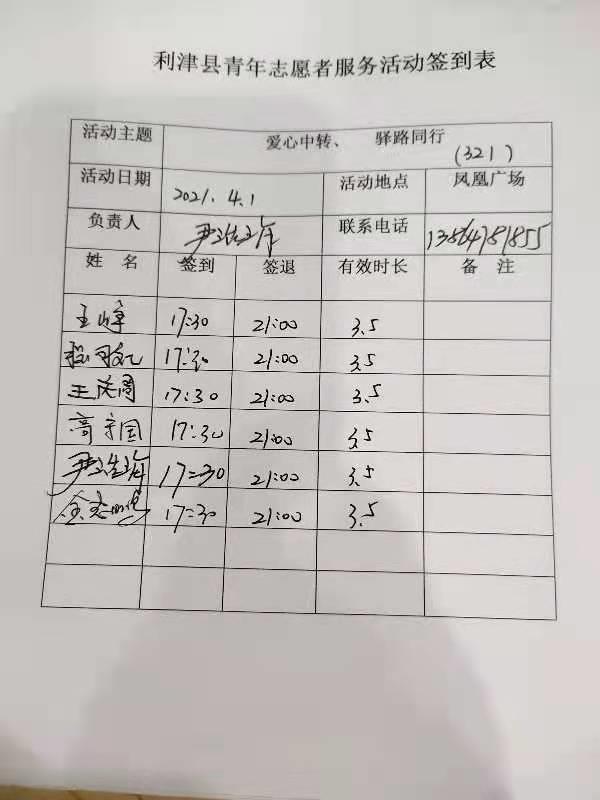 利津县青年志愿者服务活动签到表
活动主题 爱心中转、 驿路同行 (321)
活动日期 2021.4.1 活动地点 凤凰广场
负责人 联系电话 13864781855
姓名 签到 签退 有效时长 备注
王峰 17:30 21:00 3.5
17:30 21:00 3.5
王 17:30 21:00 3.5
高守国 17:30 21:00 3.5
尹 17:30 21:00 3.5
17:30 21:00 3.5